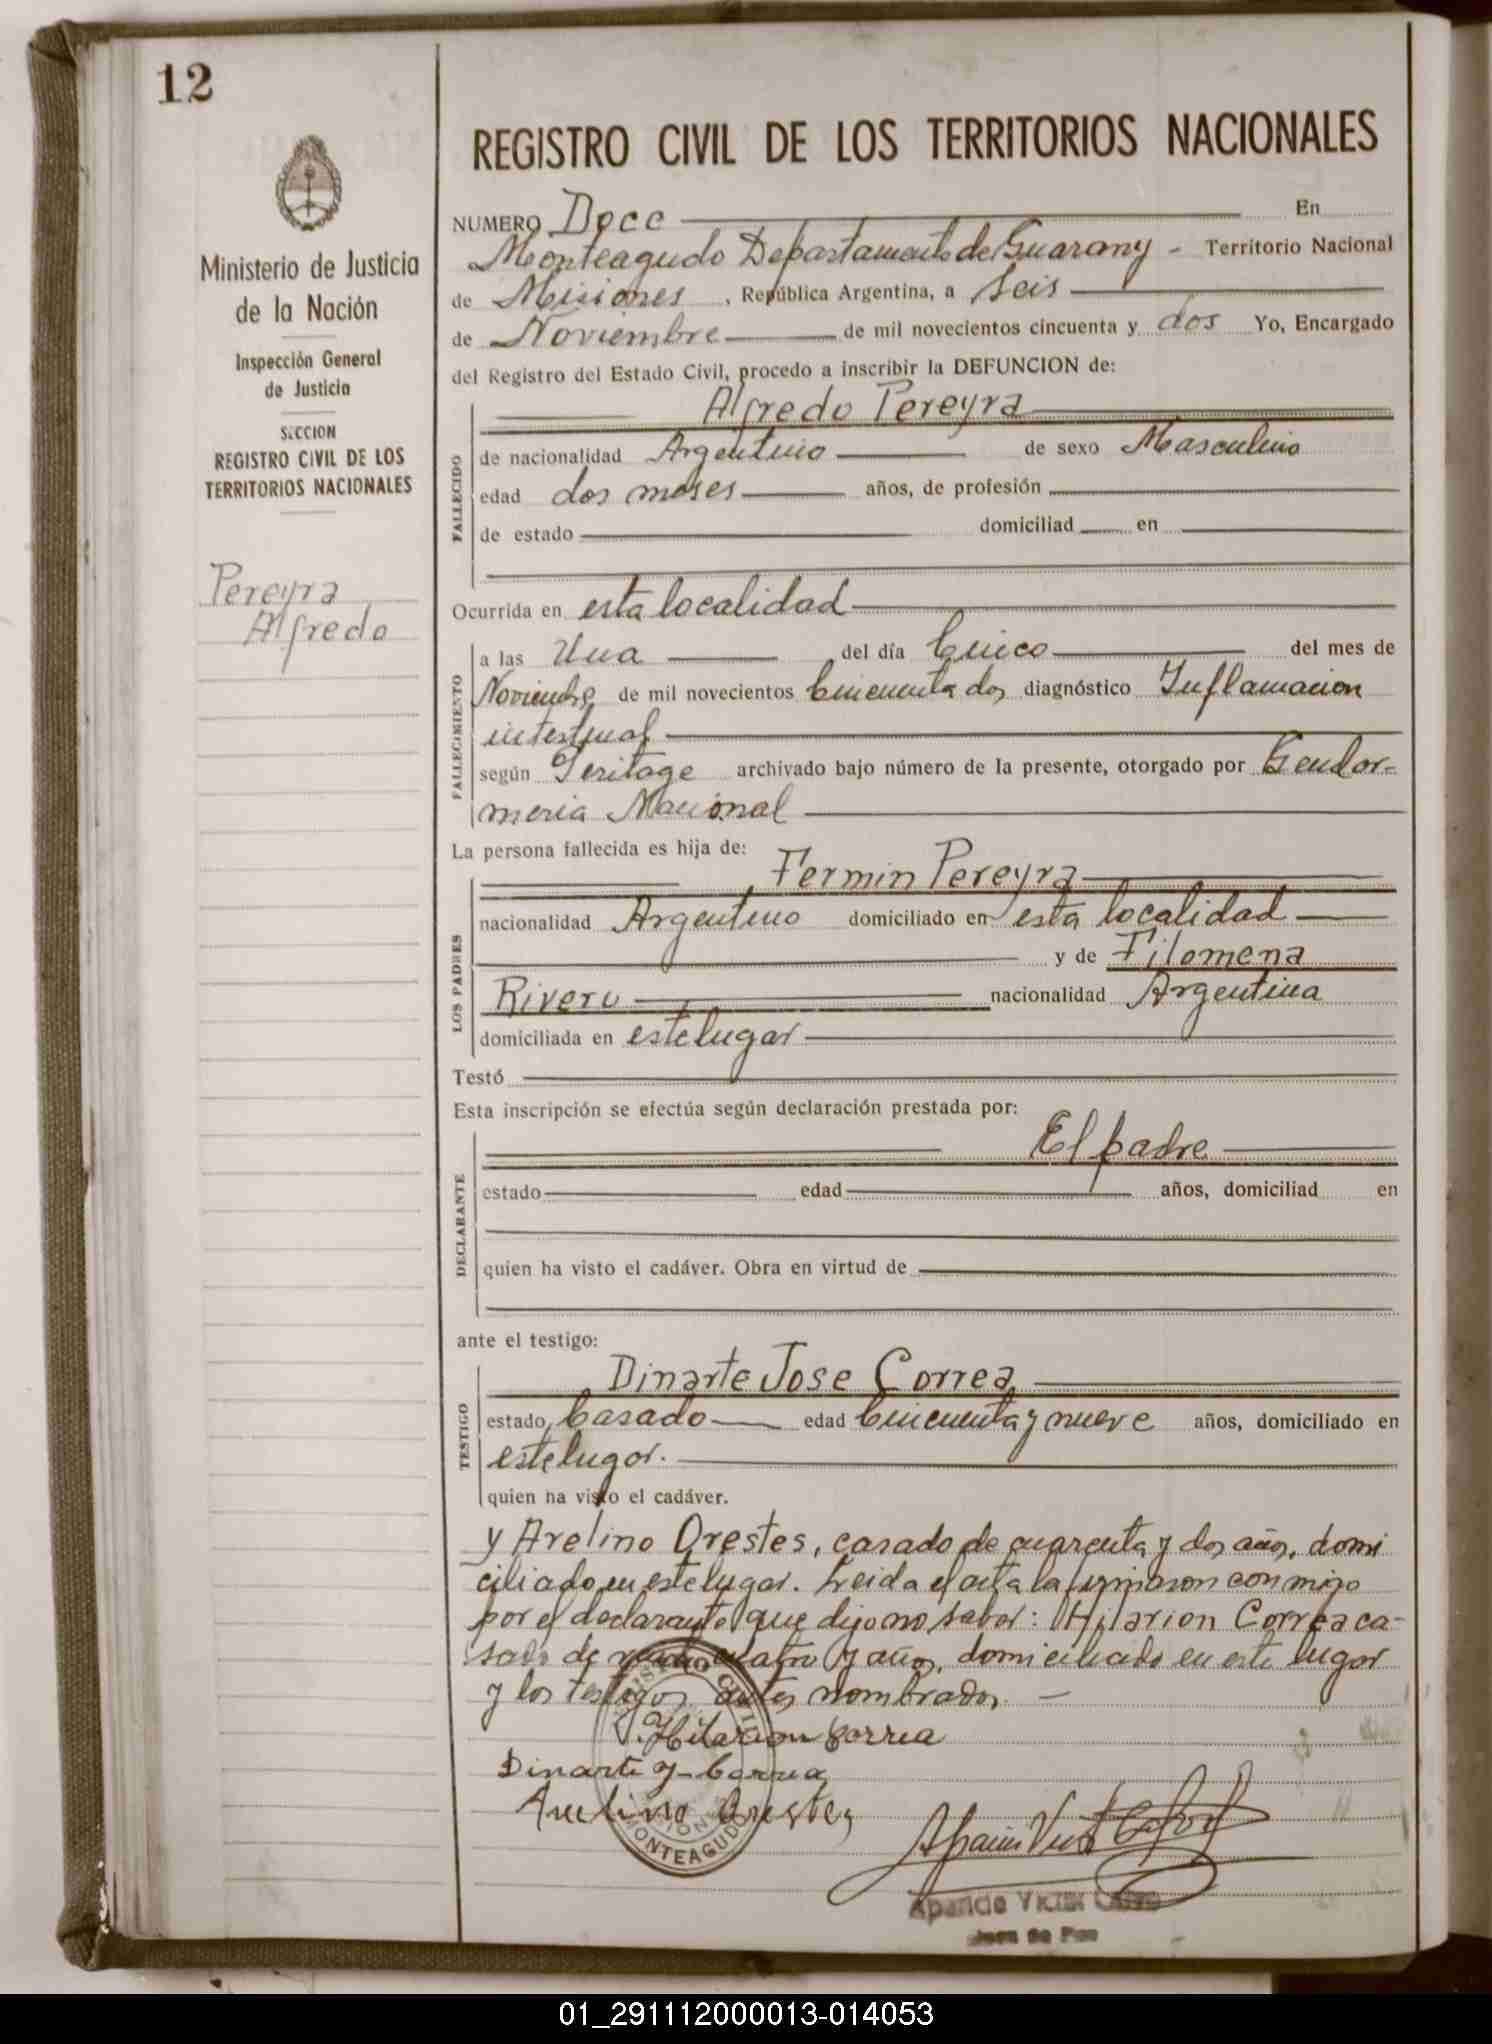 12
REGISTRO CIVIL DE LOS TERRITORIOS NACIONALES
Ministerio de Justicia
de la Nación
Inspección General
de Justicia
SECCION
REGISTRO CIVIL DE LOS
TERRITORIOS NACIONALES
Pereyra
Alfredo
NUMERO Doce En
Monteagudo Departamento de Guarany - Territorio Nacional
de Misiones, República Argentina, a seis
de Noviembre de mil novecientos cincuenta y dos Yo, Encargado
del Registro del Estado Civil, procedo a inscribir la DEFUNCION de:
Alfredo Pereyra
FALLECIDO
de nacionalidad Argentino de sexo Masculino
edad dos meses años, de profesión
de estado domiciliad en
Ocurrida en esta localidad
FALLECIMIENTO
a las Una del día Cinco del mes de
Noviembre de mil novecientos Cincuenta dos diagnóstico Inflamacion
intestinal
según Peritage archivado bajo número de la presente, otorgado por Gendar-
meria Nacional
La persona fallecida es hija de:
Fermin Pereyra
LOS PADRES
nacionalidad Argentino domiciliado en esta localidad
y de Filomena
Rivero nacionalidad Argentina
domiciliada en este lugar
Testó
Esta inscripción se efectúa según declaración prestada por:
El padre
DECLARANTE
estado edad años, domiciliad en
quien ha visto el cadáver. Obra en virtud de
ante el testigo:
Dinarte Jose Correa
TESTIGO
estado, Casado edad Cincuenta y nueve años, domiciliado en
este lugar.
quien ha visto el cadáver.
y Avelino Orestes, casado de cuarenta y dos años, domi
ciliado en este lugar. Leida el acta la firmaron conmigo
por el declarante que dijo no saber: Hilarion Correa ca-
sado de cuatro y años, domiciliado en este lugar
y los testigos antes nombrados. —
Hilarion Correa
Dinarte J. Correa
Avelino Orestes
REGISTRO CIVIL
MISIONES
MONTEAGUDO
Aparicio
Juez de Paz
01_291112000013-014053